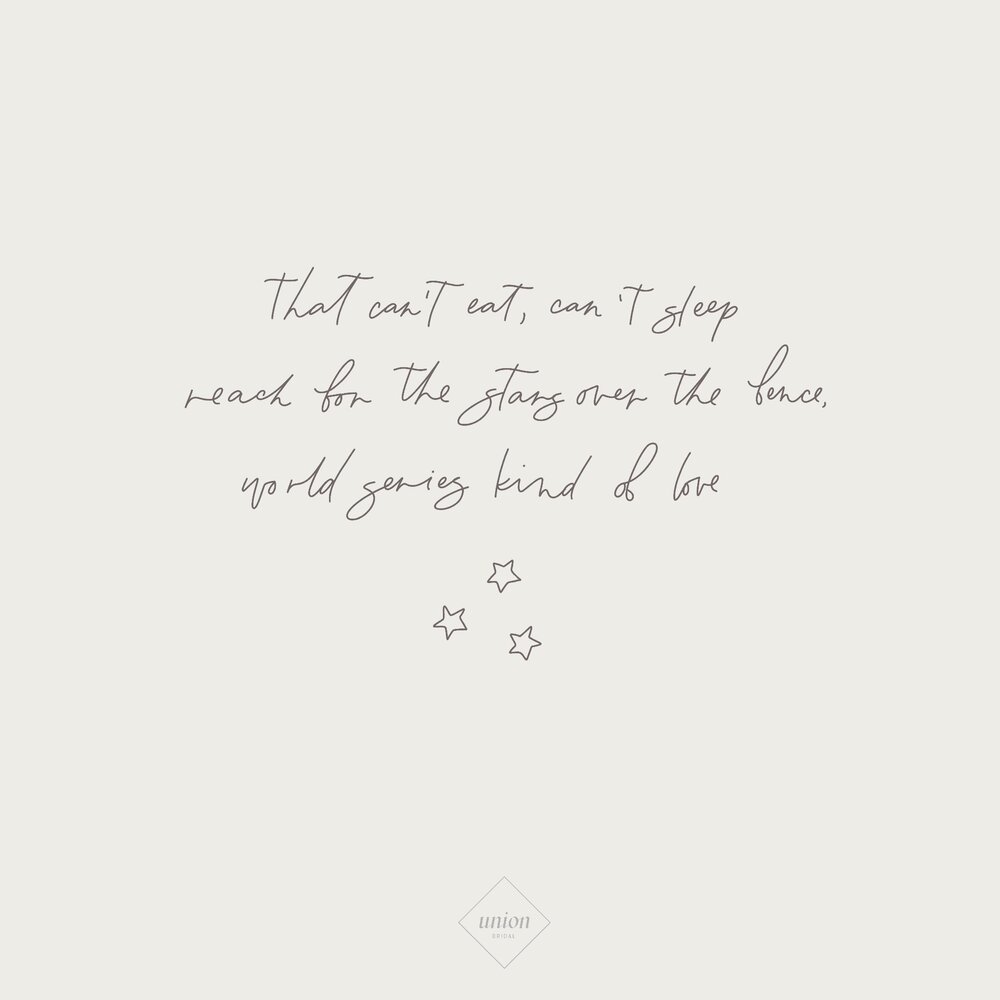 That can't eat, can't sleep
reach for the stars over the fence,
world series kind of love
union
BRIDAL